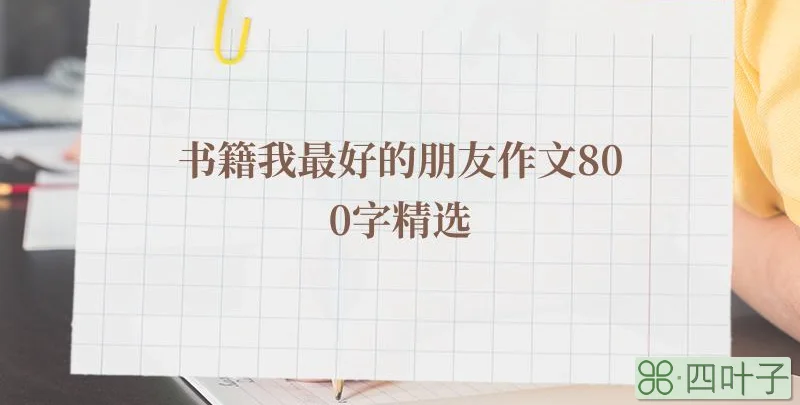 书籍我最好的朋友作文80
0字精选
四叶子